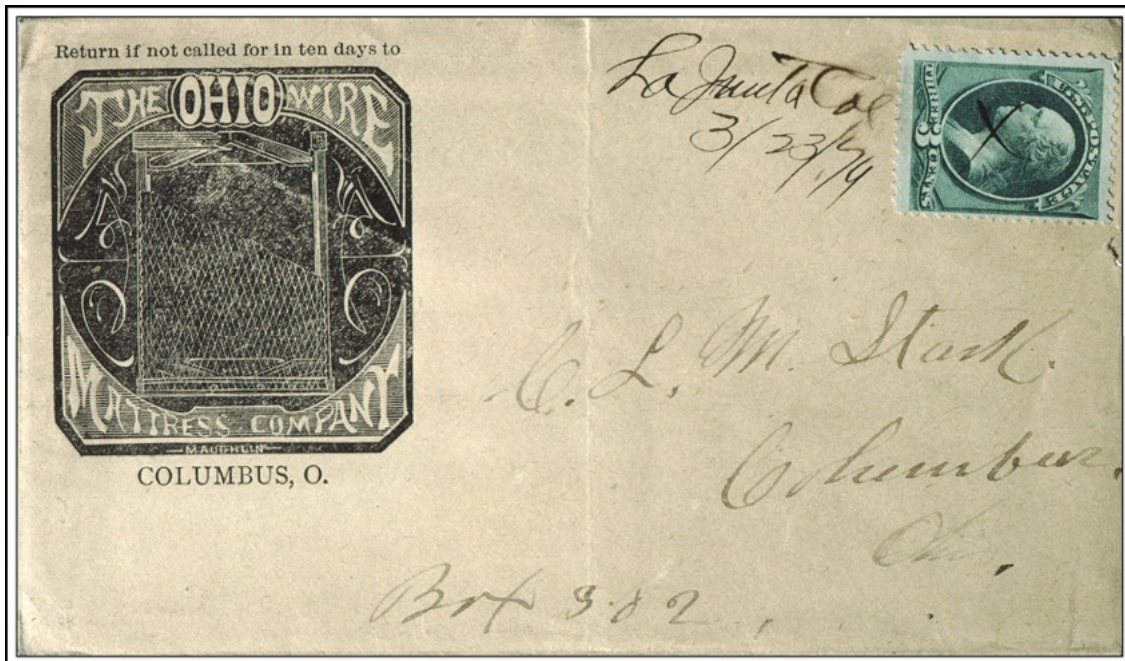 Return if not called for in ten days to
THE OHIO WIRE
MATTRESS COMPANY
MAUGHLIN
COLUMBUS, O.
La Junta Col
3/23/74
U.S. POSTAGE
THREE CENTS
X
C. L. M. Stark.
Columbus.
Ohio.
Box 302,